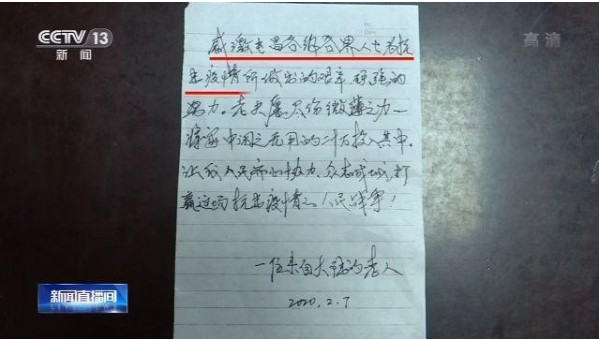 CCTV 13
新闻
高清
感激 各级各界人士为抗
击疫情所做出的艰辛 的
努力。老夫愿尽份微薄之力—
将 中 之无用的二十万投入其中,
让我人民齐心协力、众志成城,打
赢这场抗击疫情之人民战争!
一位来自 的老人
2020.2.7
新闻直播间